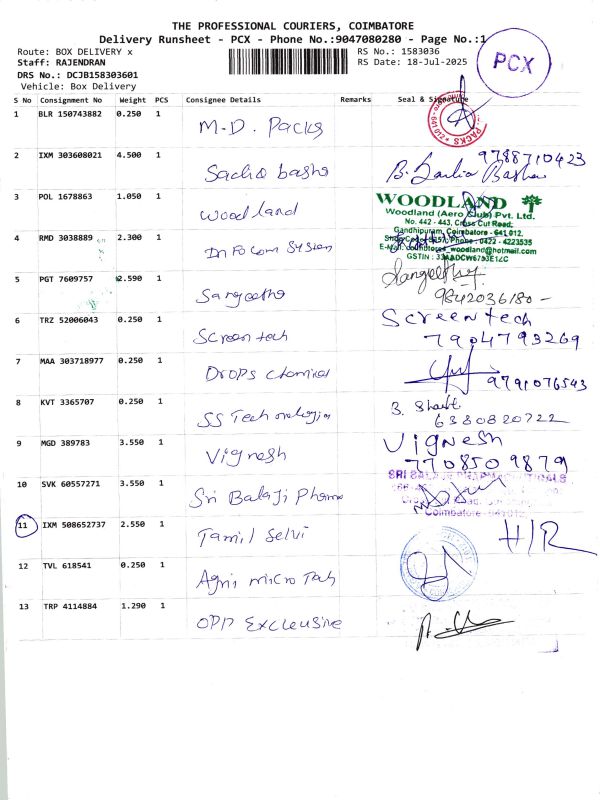 THE PROFESSIONAL COURIERS, COIMBATORE
Delivery Runsheet - PCX - Phone No.:9047080280 - Page No.:1
Route: BOX DELIVERY x
RS No.: 1583036
Staff: RAJENDRAN
RS Date: 18-Jul-2025
DRS No.: DCJB158303601
Vehicle: Box Delivery
PCX
S No Consignment No Weight PCS Consignee Details Remarks Seal & Signature
1 BLR 150743882 0.250 1 M.D. Packs
2 IXM 303608021 4.500 1 Sadio basha B. Sadio Basha 9788710423
3 POL 1678863 1.050 1 Woodland
WOODLAND
Woodland (Aero Club) Pvt. Ltd.
No. 442 - 443, Cross Cut Road,
Gandhipuram, Coimbatore - 641 012.
Phone : 0422 - 4223535
woodland@hotmail.com
GSTIN :
4 RMD 3038889 2.300 1 Infocom System
5 PGT 7609757 2.590 1 Sangeetha Sangeetha 9842036180 -
6 TRZ 52006043 0.250 1 Screen tech Screentech
7904793269
7 MAA 303718977 0.250 1 Drops chemical 9791076543
8 KVT 3365707 0.250 1 SS Technologies 6380820722
9 MGD 389783 3.550 1 Vignesh Vignesh
7708509879
10 SVK 60557271 3.550 1 Sri Balaji Pharma
SRI BALAJI PHARMACEUTICALS
Coimbatore
11 IXM 508652737 2.550 1 Tamil Selvi H/R
12 TVL 618541 0.250 1 Agni micro Tab
13 TRP 4114884 1.290 1 OPD Excleusive